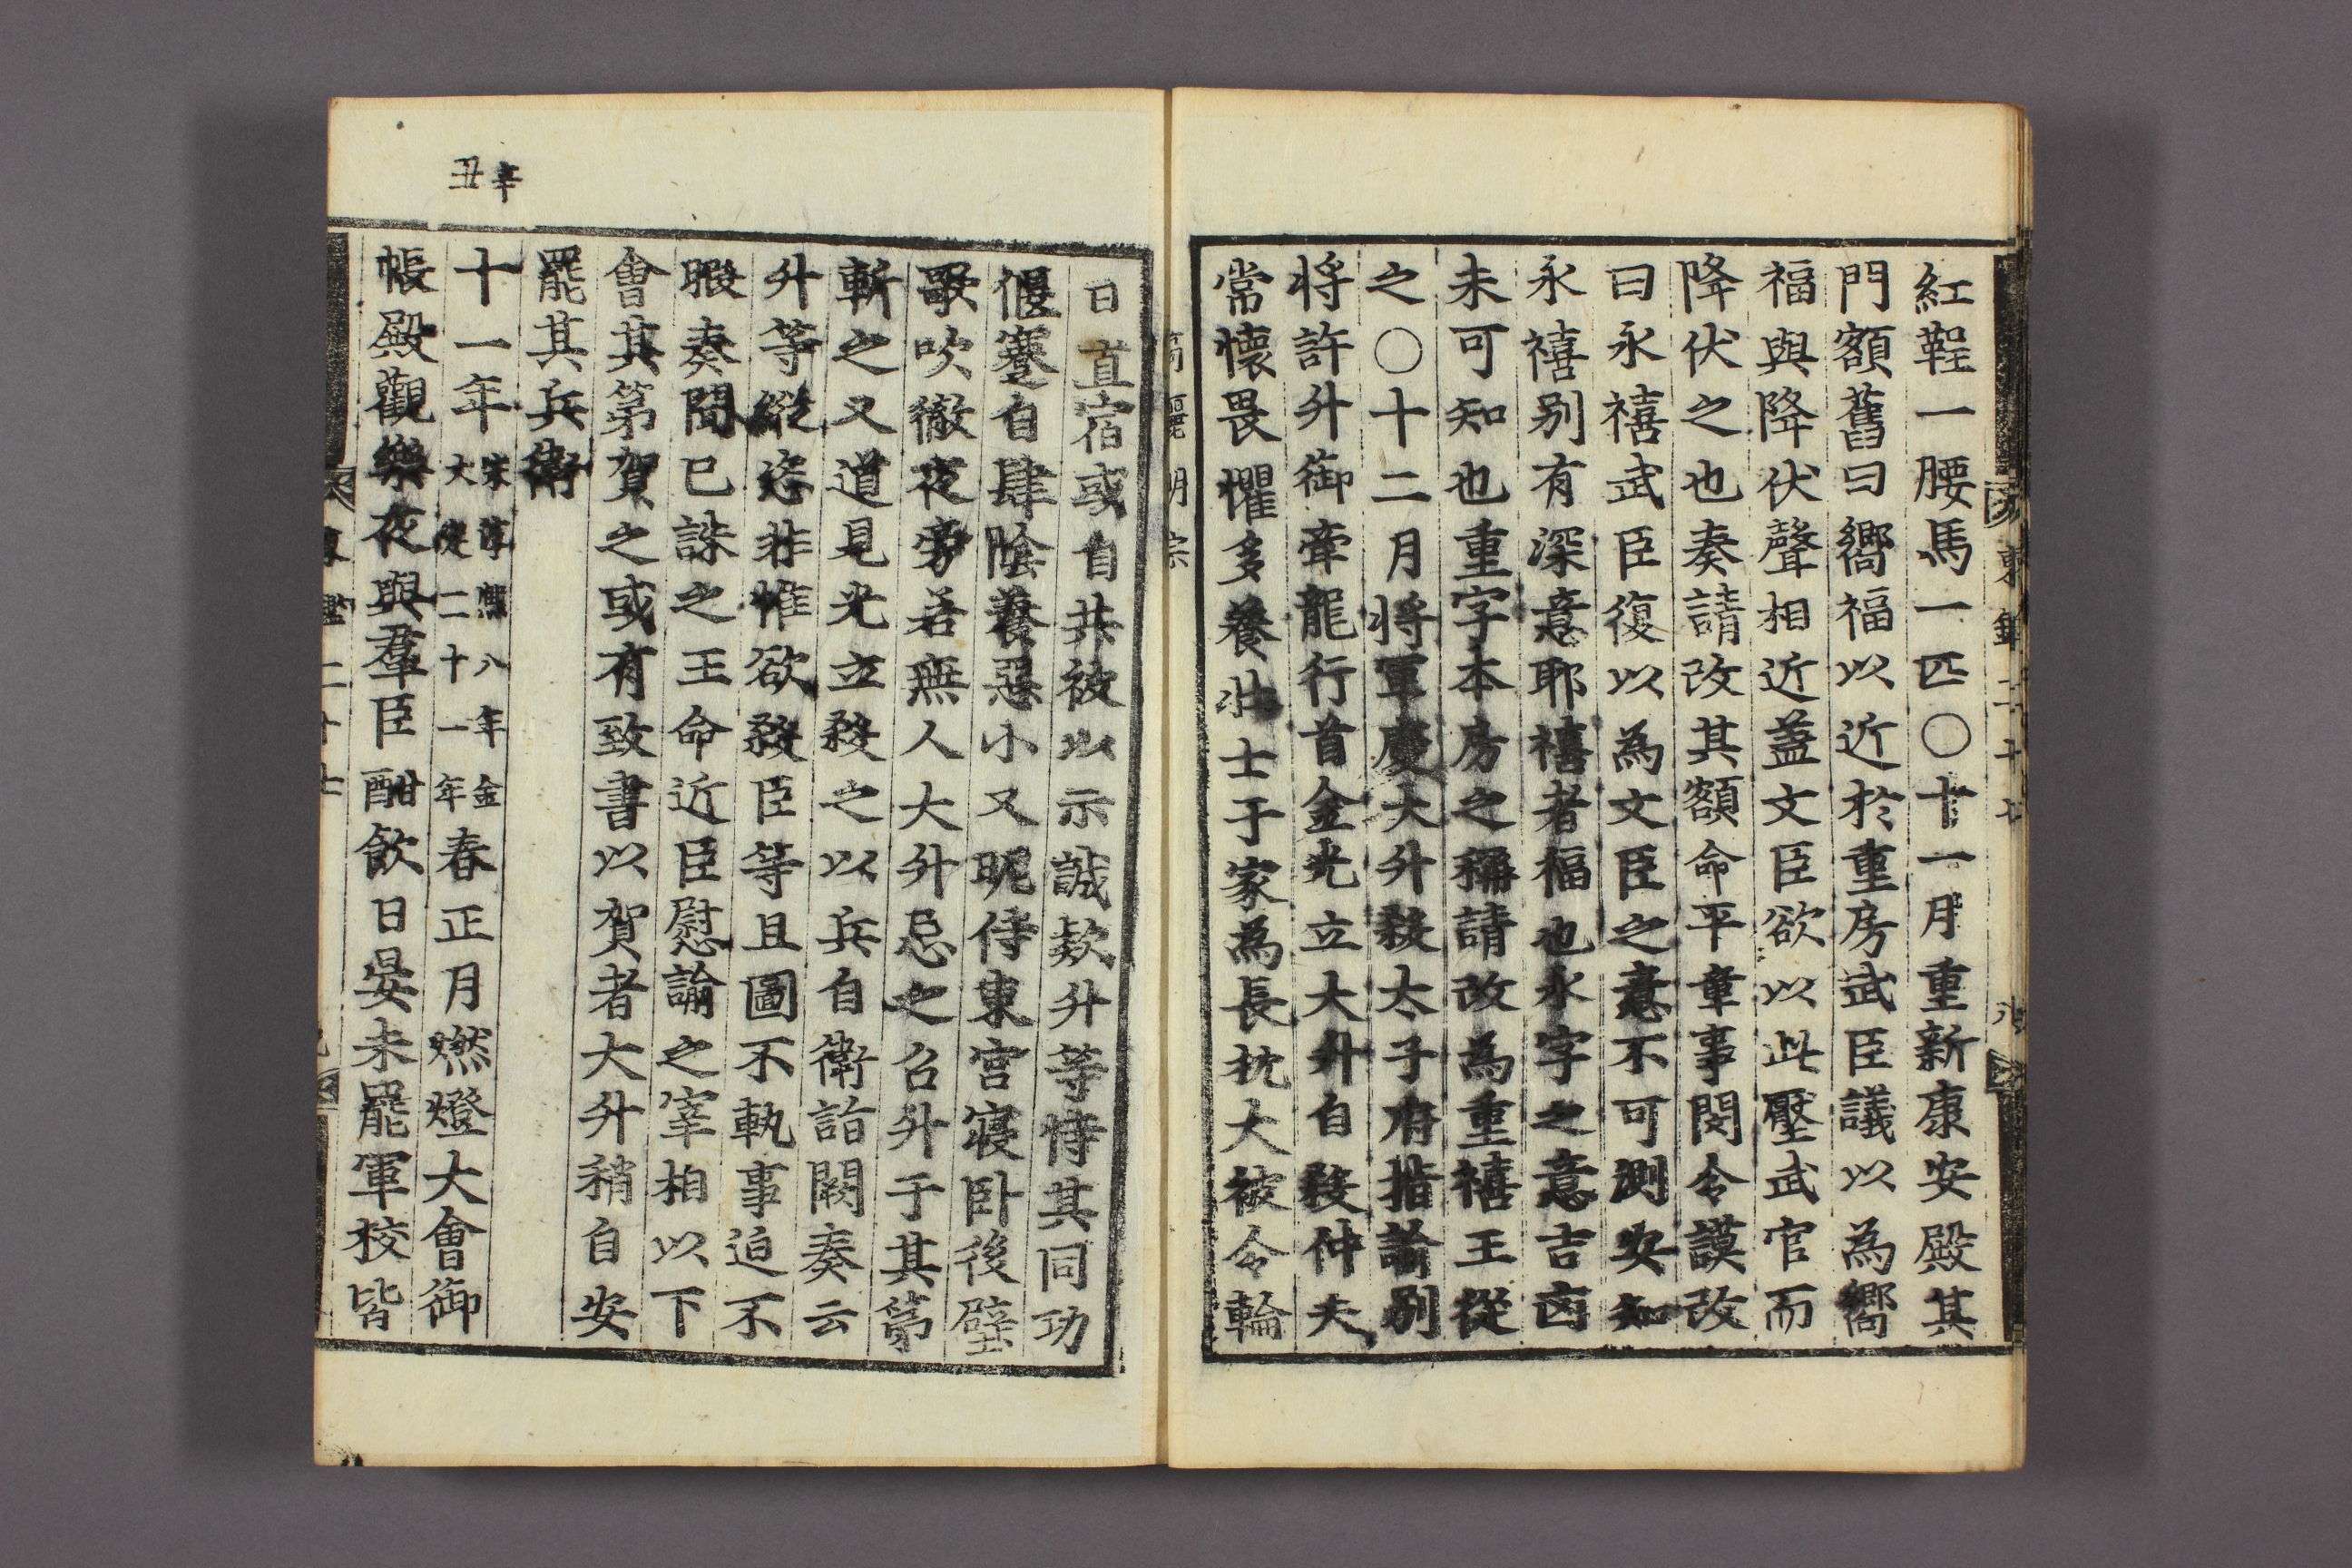 紅鞓一腰馬一匹○十一月重新康安殿其
門額舊曰嚮福以近於重房武臣議以為嚮
福與降伏聲相近蓋文臣欲以此壓武官而
降伏之也奏請改其額命平章事閔令謨改
曰永禧武臣復以為文臣之意不可測安知
永禧别有深意耶禧者福也永字之意吉凶
未可知也重字本房之稱請改為重禧王從
之○十二月將軍慶大升殺太子府指諭别
將許升御牽龍行首金光立大升自殺仲夫
常懷畏懼多養壯士于家為長枕大被令輪
高麗明宗
日直宿或自共被以示誠欵升等恃其同功
偃蹇自肆陰養惡小又昵侍東宮寢卧後壁
歌吹徹夜旁若無人大升忌之召升于其第
斬之又道見光立殺之以兵自衛詣闕奏云
升等縱恣非惟欲殺臣等且圖不軌事迫不
暇奏聞已誅之王命近臣慰諭之宰相以下
會其第賀之或有致書以賀者大升稍自安
罷其兵衛
辛丑
十一年宋淳熙八年金大定二十一年春正月燃燈大會御
帳殿觀樂夜與羣臣酣飲日晏未罷軍校皆